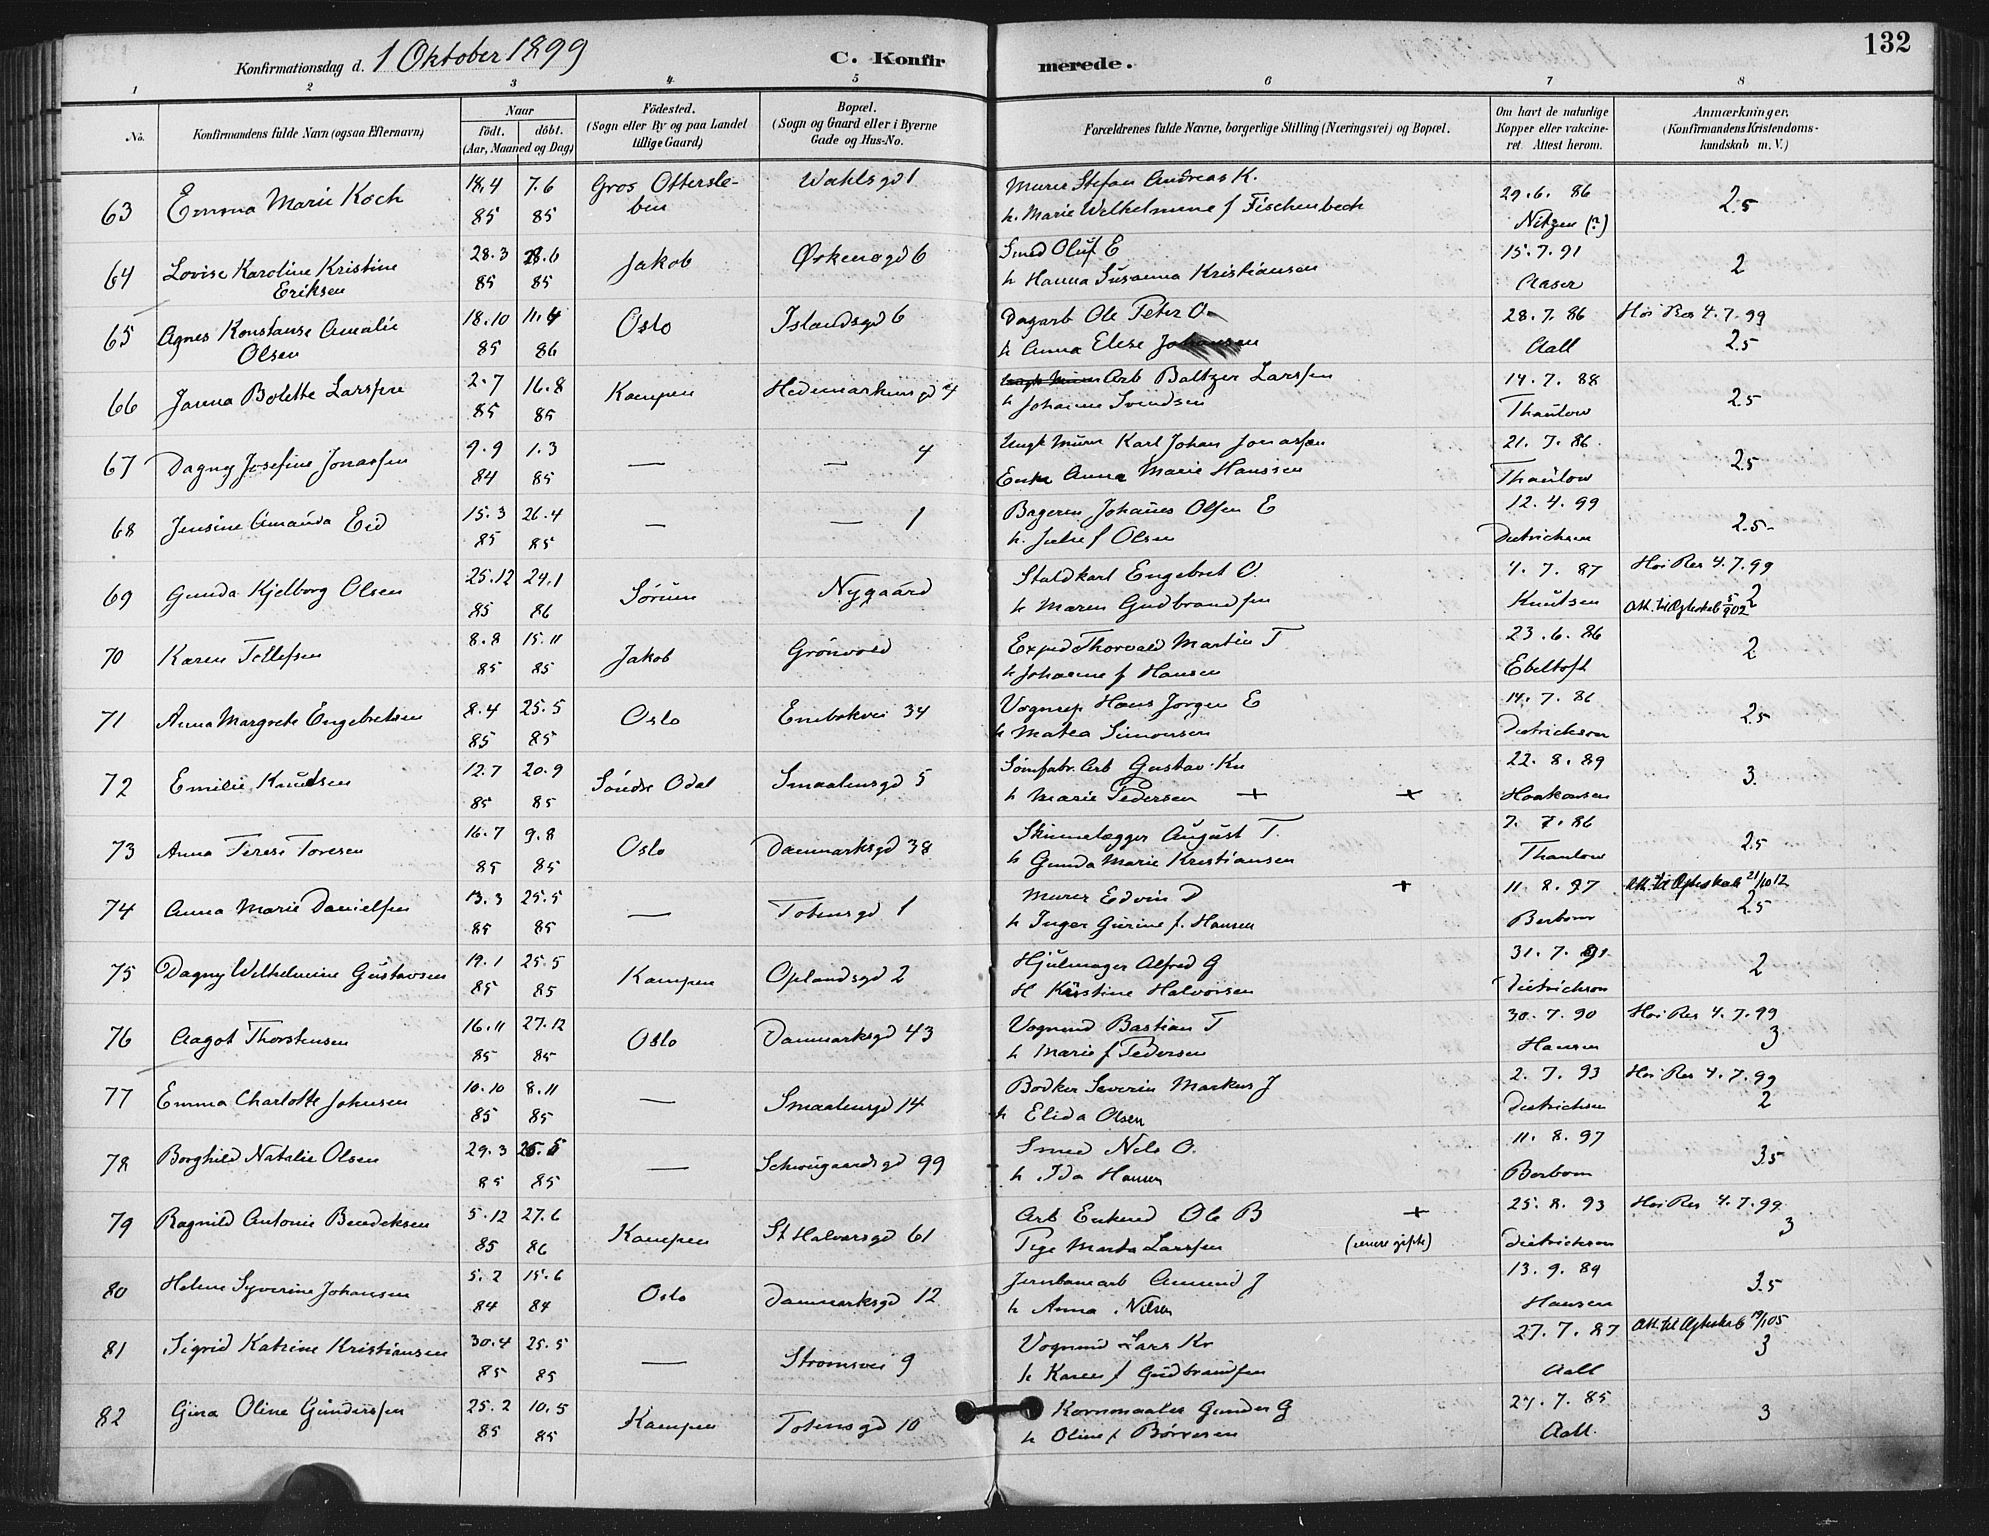 132
Konfirmationsdag d. 1 Oktober 1899
C. Konfirmerede.
1 2 3 4 5 6 7 8
No.
Konfirmandens fulde Navn (ogsaa Efternavn)
Naar
født. døbt.
(Aar, Maaned og Dag)
Födested.
(Sogn eller By og paa Landet
tillige Gaard)
Bopæl.
(Sogn og Gaard eller i Byerne
Gade og Hus-No.
Forældrenes fulde Navne, borgerlige Stilling (Næringsvei) og Bopæl.
Om havt de naturlige
Kopper eller vakcine-
ret. Attest herom.
Anmærkninger.
(Konfirmandens Kristendoms-
kundskab m. V.)
63 Emma Marie Koch 18.4 85 7.6 85 Gros Ottersle-
ben Wahlsgd 1 Murer Stefan Andreas K. 29.6.86
h. Marie Wilhelmine f Fischenbeck Nitzen (?) 2.5
64 Lovise Karoline Kristine 28.3 28.6 Jakob Økernsgd 6 Smed Oluf E 15.7.91
Eriksen 85 85 h Hanna Susanna Kristiansen Aaser 2
65 Agnes Konstanse Amalie 18.10 11.4 Oslo Islandsgd 6 Dagarb Ole Peter O. 28.7.86 Hoi Res 4.7.99
Olsen 85 86 h Anna Elise Johansen Aall 2.5
66 Janna Bolette Larssen 2.7 16.8 Kampen Hedemarkensgd 4 Arb Baltzer Larssen 14.7.88
85 85 h Johanne Svendsen Thaulow 2.5
67 Dagny Josefine Jonassen 9.9 1.3 — — 4 Ungk Murer Karl Johan Jonassen 21.7.86
84 85 Enke Anna Marie Hanssen Thaulow 2.5
68 Jensine Amanda Eid 15.3 26.4 — — 1 Bageren Johannes Olsen E 12.4.99
85 85 h. Julie f Olsen Dietrichson 2.5
69 Gunda Kjelborg Olsen 25.12 24.1 Sørum Nygaard Staldkarl Engebret O. 4.7.87 Hoi Res 4.7.99
85 86 h Maren Gudbrandsen Knutsen Att. til Ægteskab 5/9 02 2
70 Karen Tellefsen 8.8 15.11 Jakob Grönvold Exped Thorvald Martin T 23.6.86
85 85 h Johanne f Hansen Ebeltoft 2
71 Anna Margrete Engebretsen 8.4 25.5 Oslo Enebakvei 34 Vognrep Hans Jørgen E 14.7.86
85 85 h Matea Simonsen Dietrichson 2.5
72 Emilie Knudsen 12.7 20.9 Söndre Odal Smaalensgd 5 Sømfabr. Arb Gustav Kn 22.8.89
85 85 h Marie Pedersen + + Haakonsen 3.
73 Anna Terese Toresen 16.7 9.8 Oslo Danmarksgd 38 Skinnelægger August T. 7.7.86
85 85 h Gunda Marie Kristiansen Thaulow 2.5
74 Anna Marie Danielsen 13.3 25.5 — Totensgd 1 Murer Edvin D + 11.8.97 Att. til Ægteskab 21/10 12
85 85 h Inger Gurine f. Hansen Berbom 2.5
75 Dagny Wilhelmine Gustavsen 19.1 25.5 Kampen Oplandsgd 2 Hjulmager Alfred G 31.7.91
85 85 H Kristine Halvorsen Dietrichson 2
76 Aagot Thorstensen 16.11 27.12 Oslo Danmarksgd 43 Vognmd Bastian T 30.7.90 Hoi Res 4.7.99
85 85 h Marie f Pedersen Hansen 3
77 Emma Charlotte Johnsen 10.10 8.11 — Smaalensgd 14 Bødker Severin Markus J 2.7.93 Hoi Res 4.7.99
85 85 h Elida Olsen Dietrichson 2
78 Borghild Natalie Olsen 29.3 25.5 — Schweigaardsgd 99 Smed Nils O. 11.8.97
85 85 h Ida Hansen Berbom 3.5
79 Ragnild Antonie Bendeksen 5.12 27.6 Kampen St Halvarsgd 61 Arb Enkemd Ole B + 25.8.93 Hoi Res 4.7.99
85 86 Pige Marta Larssen (senere gifte) Dietrichson 3
80 Helene Syverine Johansen 5.2 15.6 Oslo Danmarksgd 12 Jernbanearb Amund J 13.9.89
84 84 h Anna Nilsen Hansen 3.5
81 Sigrid Katrine Kristiansen 30.4 25.5 — Strømsvei 9 Vognmd Lars Kr 27.7.87 Att. til Ægteskab 19/1 05
85 85 h Karen f Gudbrandsen Aall 3
82 Gina Oline Gunderssen 25.2 10.5 Kampen Totensgd 10 Kornmaaler Gunder G 27.7.85
85 85 h Oline f Børresen Aall. 3